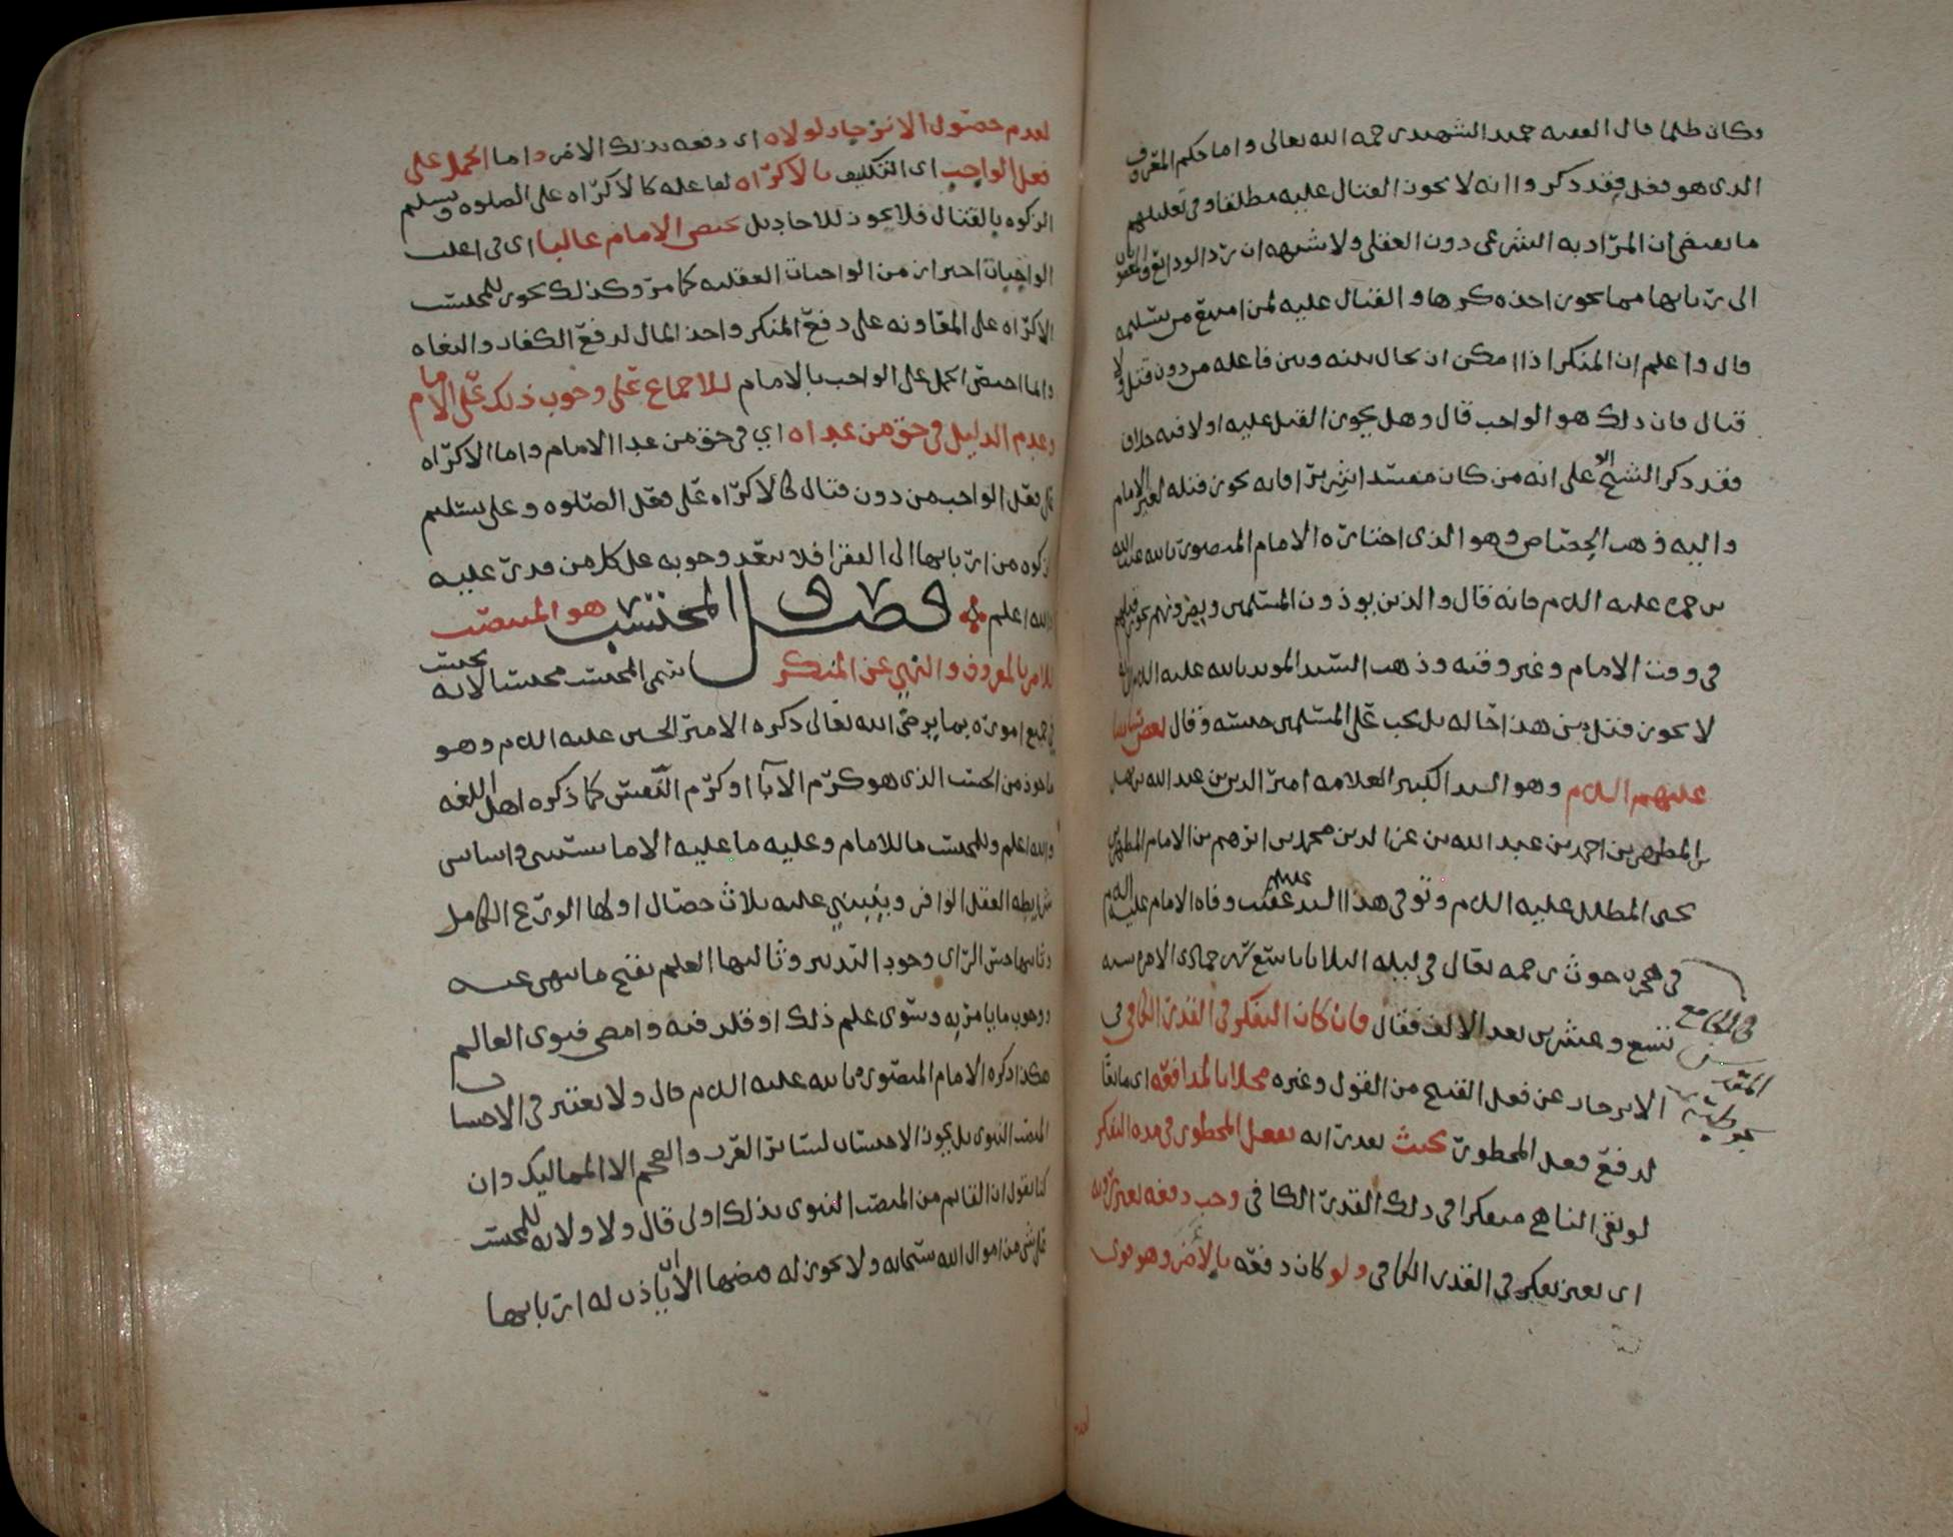 وكان طلما قال الفقيه حميد الشهيد رحمه الله تعالى واما حكم المعروف
الذي هو فعل فقد ذكروا انه لا يجوز القتال عليه مطلقا وفي تعليلهم
ما يقتضي ان المراد به الشرعي دون العقلي ولا شبهه ان رد الودائع
الى اربابها مما يجوز اخذه كرها والقتال عليه لمن امتنع من تسليمه
قال واعلم ان المنكر اذا امكن ان يحال بينه وبين فاعله من دون قتل ولا
قتال فان ذلك هو الواجب قال وهل يجوز القتل عليه او لا فيه خلاف
فقد ذكر الشيخ على انه من كان مفسدا شريرا فانه يجوز قتله لغير الامام
واليه ذهب الجصاص وهو الذي اختاره الامام المنصور بالله عبد الله
بن حمزه عليه السلام فانه قال والذين يوذون المسلمين ويضرونهم يجوز قتلهم
في وقت الامام وغير وقته وذهب السيد المويد بالله عليه السلام
لا يجوز قتل من هذا حاله بل يجب على المسلمين حبسه وقال بعض
عليهم السلام وهو السيد الكبير العلامه امير الدين بن عبد الله بن نهشل
بن المطهر بن احمد بن عبد الله بن عز الدين محمد بن ابرهيم بن الامام المطهر بن
يحيى المطلل عليه السلام وتوفي هذا السيد عقيب وفاه الامام عليه السلام
في هجره حوث رحمه الله تعالى في ليله الثلاثا تاسع شهر جمادى الاخرى سنه
تسع وعشرين بعد الالف فقال فان كان التفكر في القدر الكافي في
الانزجار عن فعل القبيح من القول وغيره مخلا بالمدافعه اي مانعا
لدفع فعل المحظور بحيث يقدر انه يفعل المحظور في مده التفكر
لو بقى الناهي متفكرا في ذلك القدر الكافي وجب دفعه بغير رويه
اي بغير تفكر في القدر الكافي ولو كان دفعه بالاضر وهو موجب
في الجامع
لعدم حصول الانزجار لولاه اي دفعه بذلك الاضر واما الحمل على
فعل الواجب اي التكليف بالاكراه لفاعله كالاكراه على الصلوه وتسليم
الزكوه بالقتال فلا يجوز للاحاد بل يختص الامام غالبا اي في اغلب
الواجبات احتراز من الواجبات العقليه كما مر وكذلك يجوز للمحتسب
الاكراه على المعاونه على دفع المنكر واخذ المال لدفع الكفار والبغاه
وانما اختص الحمل على الواجب بالامام للاجماع على وجوب ذلك على الامام
وعدم الدليل في حق من عداه اي في حق من عدا الامام واما الاكراه
على فعل الواجب من دون قتال كالاكراه على فعل الصلوه وعلى تسليم
الزكوه من اربابها الى الفقرا فلا يبعد وجوبه على كل من قدر عليه
والله اعلم فصل المحتسب هو المنتصب
للامر بالمعروف والنهي عن المنكر سمي المحتسب محتسبا لانه يحتسب
في جميع اموره بما يرضي الله تعالى ذكره الامير الحسين عليه السلام وهو
ماخوذ من الحسب الذي هو كرم الابآ او كرم النفس كما ذكره اهل اللغه
والله اعلم وللمحتسب ما للامام وعليه ما عليه الا ما يستثنى واساس
شرايطه العقل الوافر وينبني عليه ثلاث خصال اولها الورع الكامل
وثانيها حسن الراي وجود التدبير وثالثها العلم بقبح ما ينهى عنه
ووجوب ما يامر به وسوى علم ذلك او قلد فيه وامضى فتوى العالم
هكذا ذكره الامام المنصور بالله عليه السلام قال ولا يعتبر في الاحتساب
المنصب النبوي بل يجوز الاحتساب لسائر العرب والعجم الا المماليك وان
كنا نقول ان القايم من المنصب النبوي بذلك اولى قال ولا ولايه للمحتسب
على شي من اموال الله سبحانه ولا يجوز له قبضها الا ان ياذن له اربابها